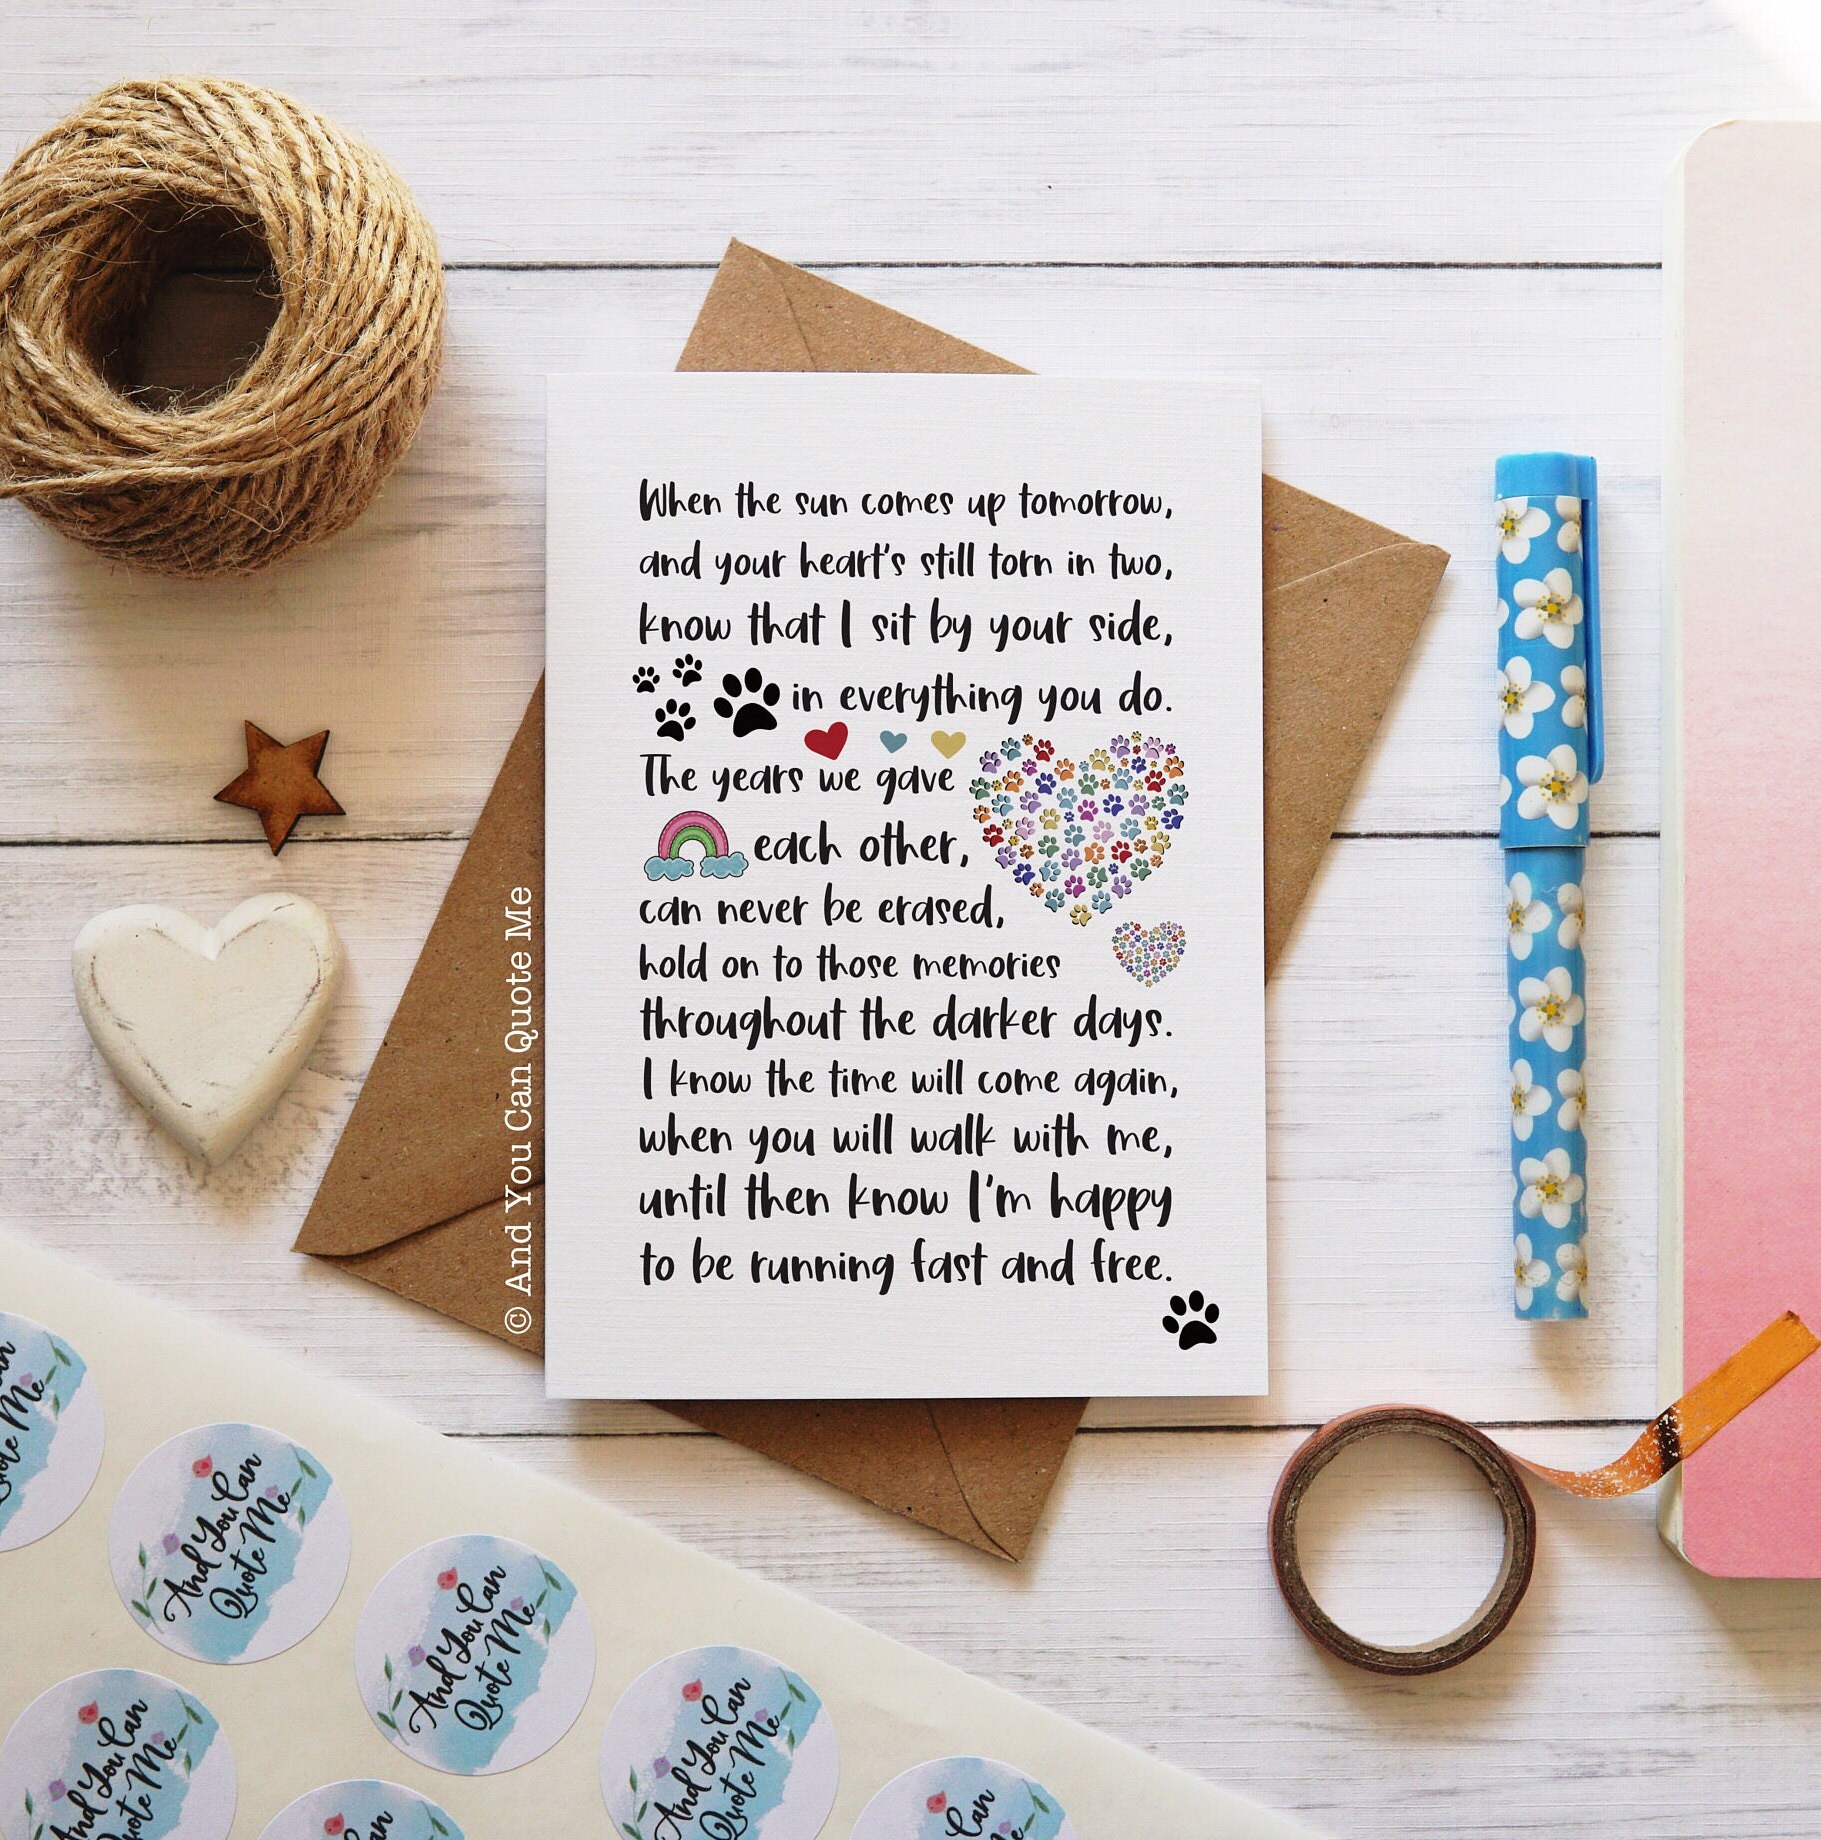 When the sun comes up tomorrow,
and your heart's still torn in two,
know that I sit by your side,
in everything you do.
The years we gave
each other,
can never be erased,
hold on to those memories
throughout the darker days.
I know the time will come again,
when you will walk with me,
until then know I'm happy
to be running fast and free.
© And You Can Quote Me
And You Can
Quote Me
And You Can
Quote Me
And You Can
Quote Me
And You Can
Quote Me
Can